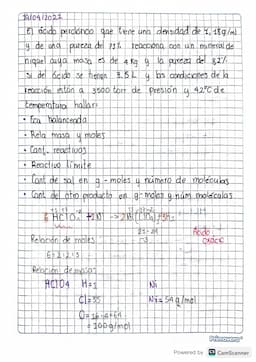 19/04/2022
El ácido perclórico que tiene una densidad de 1,18g/ml
y de una pureza del 79% reacciona con un mineral de
niquel cuya masa es de 4 Kg y la pureza del 82%
si de ácido se tienen 3.5 L y las condiciones de la
reacción están a 3500 torr de presión y 42°C de
temperatura hallar:
• Ecu balanceada
• Rela masa y moles
• Cant. reactivos
• Reactivo límite
• Cant de sal en g - moles y número de moléculas
• Cant del otro producto en g- moles y núm moléculas
6 HClO4 + 2Ni → 2Ni(ClO4)3 + 3H2
Ácido
oxácido
Relación de moles
6:2:2:3
Relación de masas
HClO4 H=1 Ni
Cl=35 Ni=59g/mol
O=16·4=64
=100g/mol
Powered by CamScanner